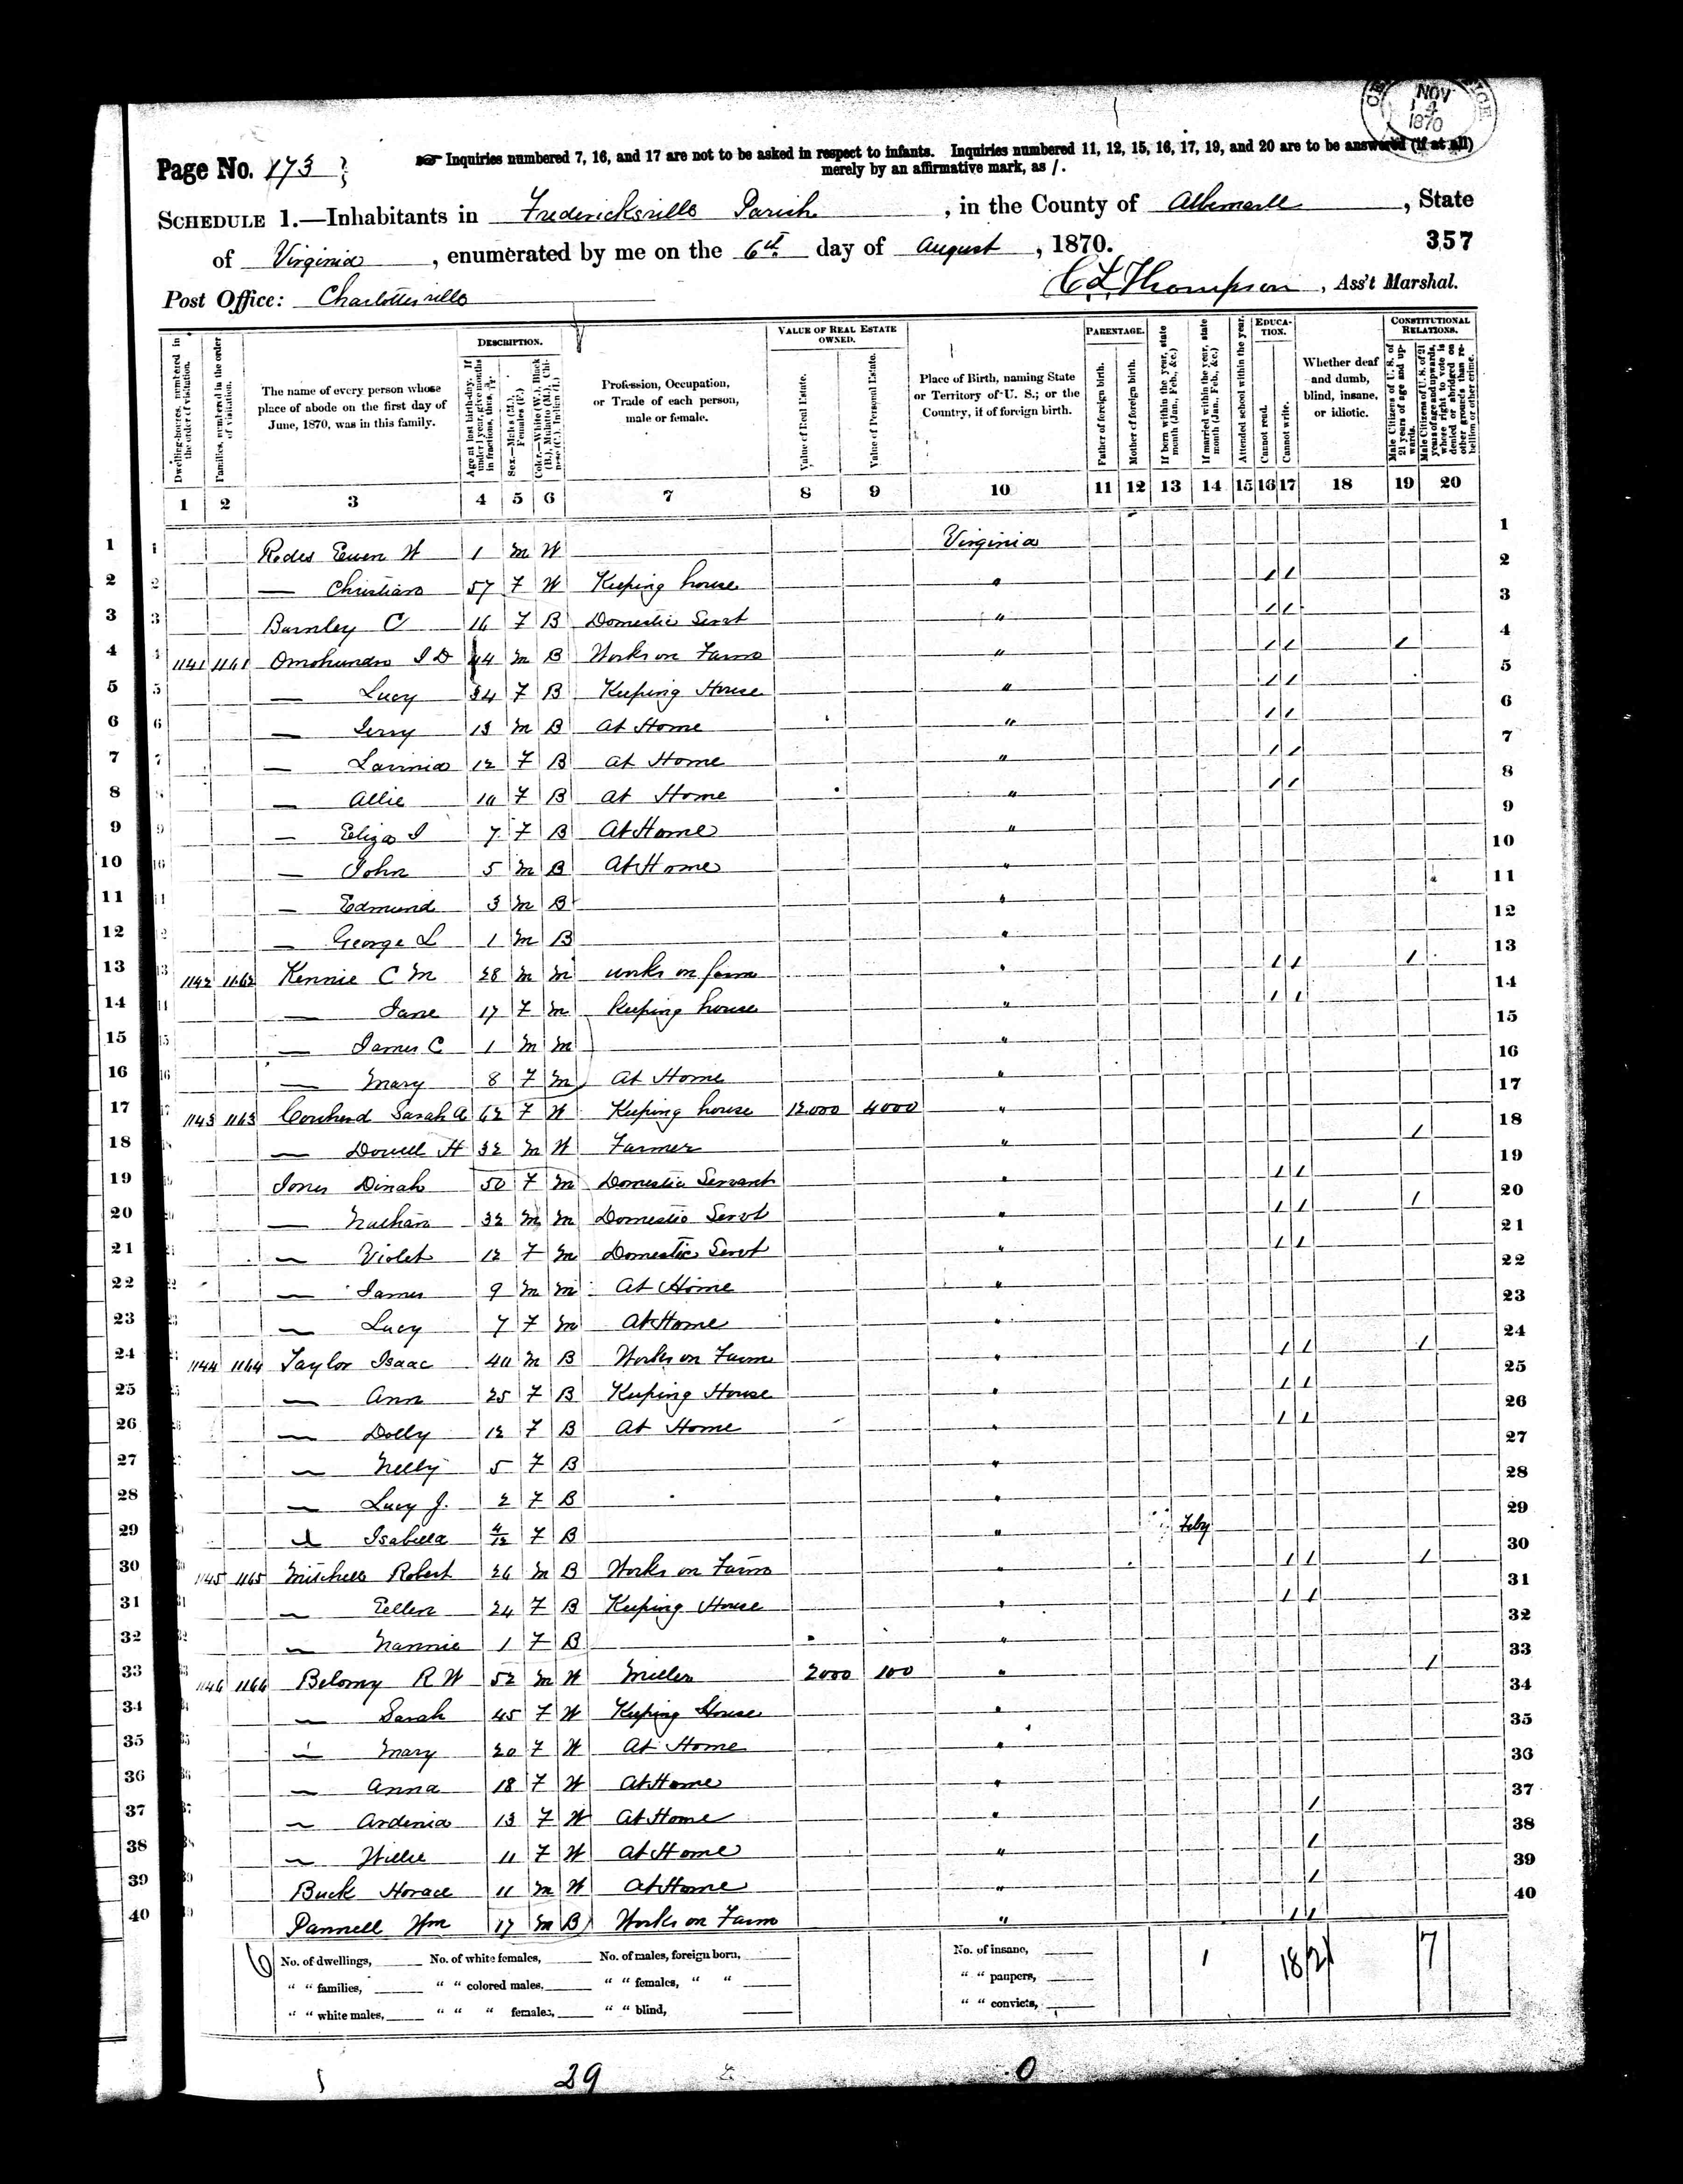 NOV
14
1870
Page No. 173
Inquiries numbered 7, 16, and 17 are not to be asked in respect to infants. Inquiries numbered 11, 12, 15, 16, 17, 19, and 20 are to be answered (if at all)
merely by an affirmative mark, as /.
SCHEDULE 1.—Inhabitants in Fredericksville Parish, in the County of Albemarle, State
of Virginia, enumerated by me on the 6th day of August, 1870.
357
Post Office: Charlottesville
C L Thompson, Ass't Marshal.
Dwelling-houses, numbered in the order of visitation.
Families, numbered in the order of visitation.
The name of every person whose place of abode on the first day of June, 1870, was in this family.
DESCRIPTION.
Age at last birth-day. If under 1 year, give months in fractions, thus, 3/12.
Sex.—Males (M.), Females (F.)
Color.—White (W.), Black (B.), Mulatto (M.), Chinese (C.), Indian (I.)
Profession, Occupation, or Trade of each person, male or female.
VALUE OF REAL ESTATE OWNED.
Value of Real Estate.
Value of Personal Estate.
Place of Birth, naming State or Territory of U. S.; or the Country, if of foreign birth.
PARENTAGE.
Father of foreign birth.
Mother of foreign birth.
If born within the year, state month (Jan., Feb., &c.)
If married within the year, state month (Jan., Feb., &c.)
Attended school within the year.
EDUCATION.
Cannot read.
Cannot write.
Whether deaf and dumb, blind, insane, or idiotic.
CONSTITUTIONAL RELATIONS.
Male Citizens of U. S. of 21 years of age and upwards.
Male Citizens of U. S. of 21 years of age and upwards, where right to vote is denied or abridged on other grounds than rebellion or other crime.
1 2 3 4 5 6 7 8 9 10 11 12 13 14 15 16 17 18 19 20
1 Rodes Ewen W 1 M W Virginia 1
2 — Christian 57 F W Keeping house " / / 2
3 Burnley C 16 F B Domestic Servt " / / 3
4 1141 1161 Omohundro J D 44 M B Works on Farm " / / / 4
5 — Lucy 34 F B Keeping House " / / 5
6 — Jerry 13 M B At Home " / / 6
7 — Lavinia 12 F B At Home " / / 7
8 — Allie 10 F B At Home " / / 8
9 — Eliza J 7 F B At Home " 9
10 — John 5 M B At Home " 10
11 — Edmund 3 M B " 11
12 — George L 1 M B " 12
13 1142 1162 Kennie C M 28 M M works on farm " / / / 13
14 — Jane 17 F M Keeping house " / / 14
15 — James C 1 M M " 15
16 — Mary 8 F M At Home " 16
17 1143 1163 Cowherd Sarah A 62 F W Keeping house 12000 4000 " 17
18 — Dowell H 32 M W Farmer " / 18
19 Jones Dinah 50 F M Domestic Servant " / / 19
20 — Nathan 32 M M Domestic Servt " / / / 20
21 — Violet 12 F M Domestic Servt " / / 21
22 — James 9 M M At Home " 22
23 — Lucy 7 F M At Home " 23
24 1144 1164 Taylor Isaac 40 M B Works on Farm " / / / 24
25 — Ann 25 F B Keeping House " / / 25
26 — Dolly 12 F B At Home " / / 26
27 — Nelly 5 F B " 27
28 — Lucy J. 2 F B " 28
29 — Isabella 4/12 F B " Feby 29
30 1145 1165 Mitchell Robert 26 M B Works on Farm " / / / 30
31 — Eellen 24 F B Keeping House " / / 31
32 — Nannie 1 F B " 32
33 1146 1166 Belomy R W 52 M W Miller 2000 100 " / 33
34 — Sarah 45 F W Keeping House " 34
35 — Mary 20 F W At Home " 35
36 — Anna 18 F W At Home " 36
37 — Ardenia 13 F W At Home " / 37
38 — Willie 11 F W At Home " / 38
39 Buck Horace 11 M W At Home " / 39
40 Pannell Wm 17 M B Works on Farm " / / 40
6 No. of dwellings, No. of white females, No. of males, foreign born, No. of insane, 1 18 21 7
" " families, " " colored males, " " females, " " " " paupers,
" " white males, " " " females, " " blind, " " convicts,
29 0